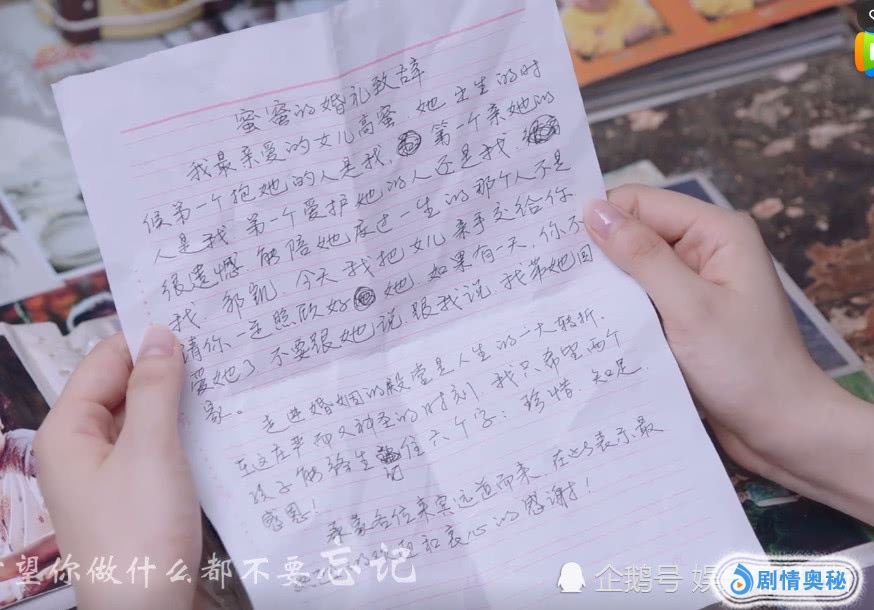 蜜蜜的婚礼致辞
我最亲爱的女儿高蜜，她出生的时
候第一个抱她的人是我，第一个亲她的
人是我，第一个爱护她的人还是我，
很遗憾，能陪她度过一生的那个人不是
我，郭凯，今天我把女儿亲手交给你
请你一定照顾好她，如果有一天，你不
爱她了，不要跟她说，跟我说，我带她回
家。
走进婚姻的殿堂是人生的一大转折，
在这庄严而又神圣的时刻，我只希望两个
孩子能终生记住六个字：珍惜、知足、
感恩！
承蒙各位来宾远道而来，在此表示最
和衷心的感谢！
望你做什么都不要忘记
企鹅号 娱
剧情奥秘